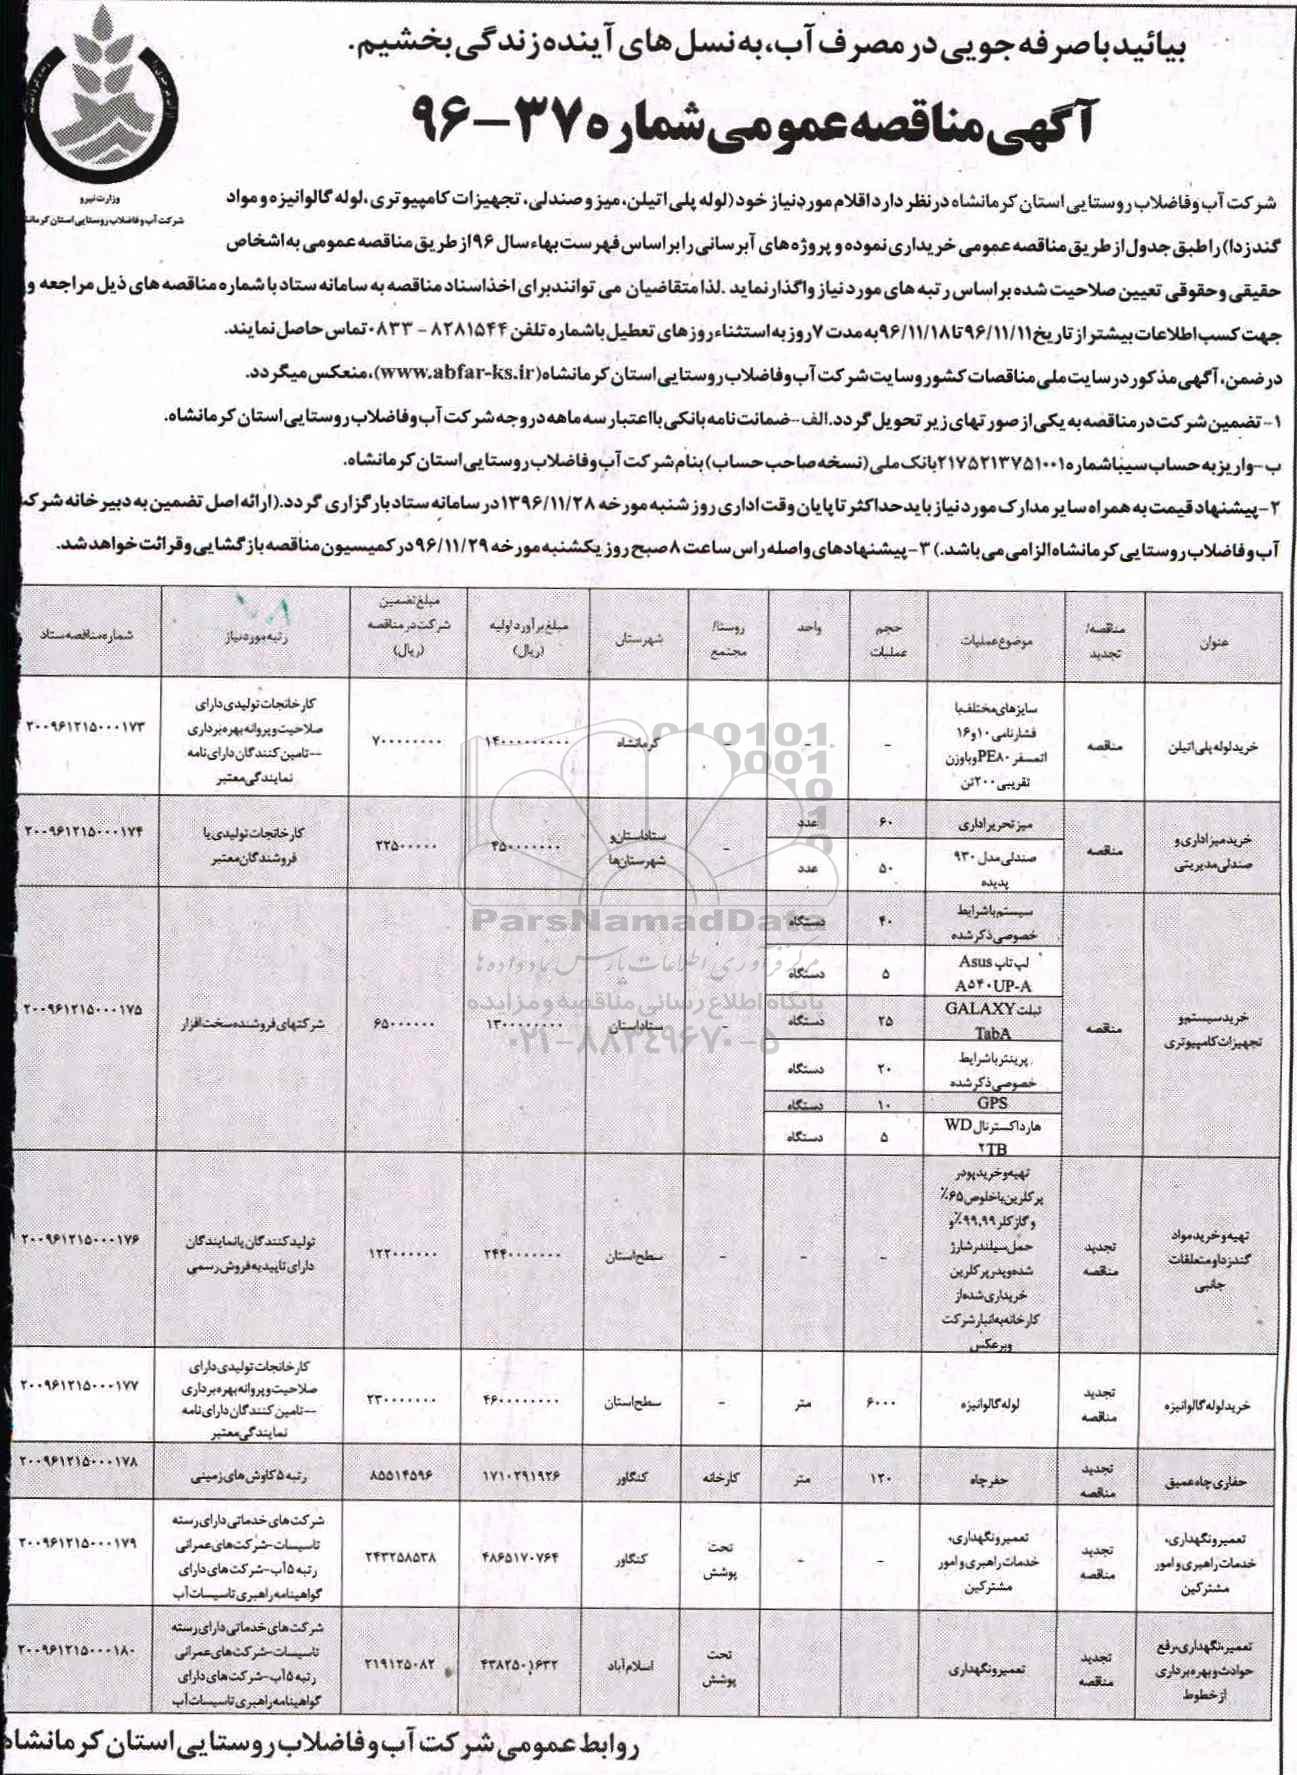 بیائید با صرفه جویی در مصرف آب، به نسل های آینده زندگی بخشیم.
آگهی مناقصه عمومی شماره ۳۷-۹۶
وزارت نیرو
شرکت آب و فاضلاب روستایی استان کرمانشاه
شرکت آب و فاضلاب روستایی استان کرمانشاه در نظر دارد اقلام مورد نیاز خود (لوله پلی اتیلن، میز و صندلی، تجهیزات کامپیوتری، لوله گالوانیزه و مواد
گندزدا) را طبق جدول از طریق مناقصه عمومی خریداری نموده و پروژه های آبرسانی را بر اساس فهرست بهاء سال ۹۶ از طریق مناقصه عمومی به اشخاص
حقیقی و حقوقی تعیین صلاحیت شده بر اساس رتبه های مورد نیاز واگذار نماید. لذا متقاضیان می توانند برای اخذ اسناد مناقصه به سامانه ستاد با شماره مناقصه های ذیل مراجعه و
جهت کسب اطلاعات بیشتر از تاریخ ۹۶/۱۱/۱۱ تا ۹۶/۱۱/۱۸ به مدت ۷ روز به استثناء روزهای تعطیل با شماره تلفن ۸۲۸۱۵۴۴ - ۰۸۳۳ تماس حاصل نمایند.
در ضمن، آگهی مذکور در سایت ملی مناقصات کشور و سایت شرکت آب و فاضلاب روستایی استان کرمانشاه (www.abfar-ks.ir)، منعکس میگردد.
۱- تضمین شرکت در مناقصه به یکی از صورتهای زیر تحویل گردد. الف- ضمانت نامه بانکی با اعتبار سه ماهه در وجه شرکت آب و فاضلاب روستایی استان کرمانشاه.
ب- واریز به حساب سیبا شماره ۲۱۷۵۲۱۳۷۵۱۰۰۱ بانک ملی (نسخه صاحب حساب) بنام شرکت آب و فاضلاب روستایی استان کرمانشاه.
۲- پیشنهاد قیمت به همراه سایر مدارک مورد نیاز باید حداکثر تا پایان وقت اداری روز شنبه مورخه ۱۳۹۶/۱۱/۲۸ در سامانه ستاد بارگزاری گردد. (ارائه اصل تضمین به دبیرخانه شرکت
آب و فاضلاب روستایی کرمانشاه الزامی می باشد.) ۳- پیشنهادهای واصله راس ساعت ۸ صبح روز یکشنبه مورخه ۹۶/۱۱/۲۹ در کمیسیون مناقصه بازگشایی و قرائت خواهد شد.
عنوان | مناقصه/تجدید | موضوع عملیات | حجم عملیات | واحد | روستا/مجتمع | شهرستان | مبلغ برآورد اولیه (ریال) | مبلغ تضمین شرکت در مناقصه (ریال) | رتبه مورد نیاز | شماره مناقصه ستاد
خرید لوله پلی اتیلن | مناقصه | سایزهای مختلف با فشار نامی ۱۰ و ۱۶ اتمسفر PE۸۰ و با وزن تقریبی ۲۰۰ تن | - | - | - | کرمانشاه | ۱۴۰۰۰۰۰۰۰۰۰ | ۷۰۰۰۰۰۰۰۰ | کارخانجات تولیدی دارای صلاحیت و پروانه بهره برداری --تامین کنندگان دارای نامه نمایندگی معتبر | ۲۰۰۹۶۱۲۱۵۰۰۰۱۷۳
خرید میز اداری و صندلی مدیریتی | مناقصه | میز تحریر اداری | ۶۰ | عدد | - | ستاد استان و شهرستان ها | ۴۵۰۰۰۰۰۰۰ | ۲۲۵۰۰۰۰۰ | کارخانجات تولیدی یا فروشندگان معتبر | ۲۰۰۹۶۱۲۱۵۰۰۰۱۷۴
صندلی مدل ۹۳۰ پدیده | ۵۰ | عدد
خرید سیستم و تجهیزات کامپیوتری | مناقصه | سیستم با شرایط خصوصی ذکر شده | ۴۰ | دستگاه | - | ستاد استان | ۱۳۰۰۰۰۰۰۰۰ | ۶۵۰۰۰۰۰۰ | شرکتهای فروشنده سخت افزار | ۲۰۰۹۶۱۲۱۵۰۰۰۱۷۵
لپ تاپ Asus A۵۴۰UP-A | ۵ | دستگاه
تبلت GALAXY TabA | ۲۵ | دستگاه
پرینتر با شرایط خصوصی ذکر شده | ۲۰ | دستگاه
GPS | ۱۰ | دستگاه
هارد اکسترنال WD ۲TB | ۵ | دستگاه
تهیه و خرید مواد گندزدا و متعلقات جانبی | تجدید مناقصه | تهیه و خرید پودر پرکلرین با خلوص ۶۵٪ و گاز کلر ۹۹.۹۹٪ و حمل سیلندر شارژ شده و پودر پرکلرین خریداری شده از کارخانه به انبار شرکت و برعکس | - | - | - | سطح استان | ۲۴۴۰۰۰۰۰۰۰ | ۱۲۲۰۰۰۰۰۰ | تولید کنندگان یا نمایندگان دارای تاییدیه فروش رسمی | ۲۰۰۹۶۱۲۱۵۰۰۰۱۷۶
خرید لوله گالوانیزه | تجدید مناقصه | لوله گالوانیزه | ۶۰۰۰ | متر | - | سطح استان | ۴۶۰۰۰۰۰۰۰۰ | ۲۳۰۰۰۰۰۰۰ | کارخانجات تولیدی دارای صلاحیت و پروانه بهره برداری --تامین کنندگان دارای نامه نمایندگی معتبر | ۲۰۰۹۶۱۲۱۵۰۰۰۱۷۷
حفاری چاه عمیق | تجدید مناقصه | حفر چاه | ۱۲۰ | متر | کارخانه | کنگاور | ۱۷۱۰۲۹۱۹۲۶ | ۸۵۵۱۴۵۹۶ | رتبه ۵ کاوش های زمینی | ۲۰۰۹۶۱۲۱۵۰۰۰۱۷۸
تعمیر و نگهداری، خدمات راهبری و امور مشترکین | تجدید مناقصه | تعمیر و نگهداری، خدمات راهبری و امور مشترکین | - | - | تحت پوشش | کنگاور | ۴۸۶۵۱۷۰۷۶۴ | ۲۴۳۲۵۸۵۳۸ | شرکت های خدماتی دارای رسته تاسیسات-شرکت های عمرانی رتبه ۵ آب-شرکت های دارای گواهینامه راهبری تاسیسات آب | ۲۰۰۹۶۱۲۱۵۰۰۰۱۷۹
تعمیر، نگهداری، رفع حوادث و بهره برداری از خطوط | تجدید مناقصه | تعمیر و نگهداری | تحت پوشش | اسلام آباد | ۴۳۸۲۵۰۱۶۳۲ | ۲۱۹۱۲۵۰۸۲ | شرکت های خدماتی دارای رسته تاسیسات-شرکت های عمرانی رتبه ۵ آب-شرکت های دارای گواهینامه راهبری تاسیسات آب | ۲۰۰۹۶۱۲۱۵۰۰۰۱۸۰
ParsNamadData
مرکز فرآوری اطلاعات پارس نماد داده ها
پایگاه اطلاع رسانی مناقصه و مزایده
۰۲۱-۸۸۳۴۹۶۷۰-۵
روابط عمومی شرکت آب و فاضلاب روستایی استان کرمانشاه